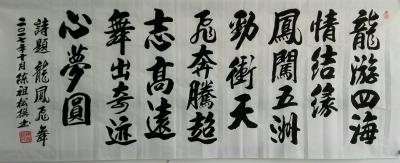 龍游四海
情結緣
鳳闖五洲
勁衝天
飛奔騰越
志高遠
舞出奇迹
心夢圓
詩題龍鳳飛舞
二〇一七年十月練祖松撰書